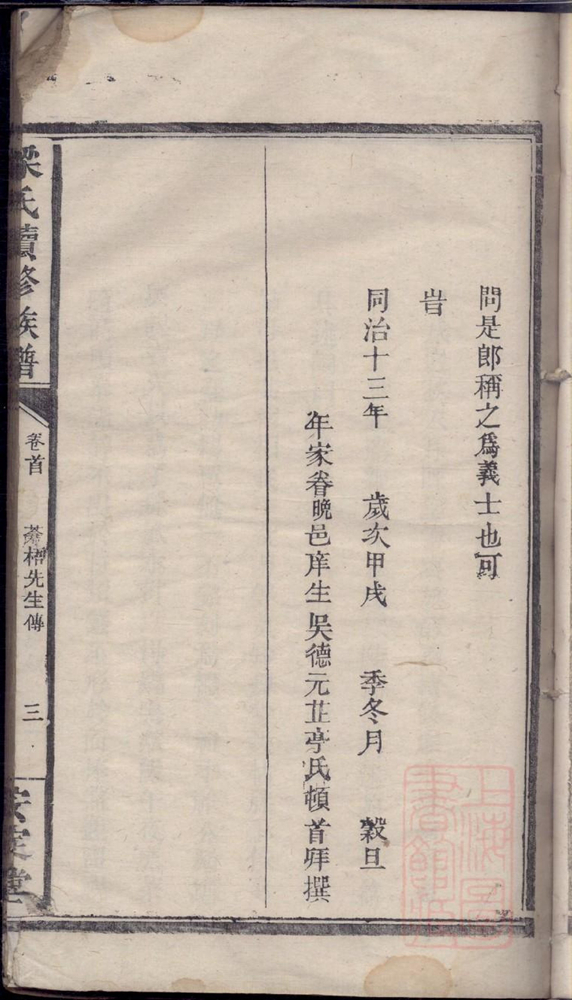 問是郎稱之爲義士也可
旹
同治十三年 歲次甲戌 季冬月 穀旦
年家眷晚邑庠生吳德元芷亭氏頓首拜撰
梁氏續修族譜 卷首 蒼梧先生傳 三 安定堂
上海圖書館藏